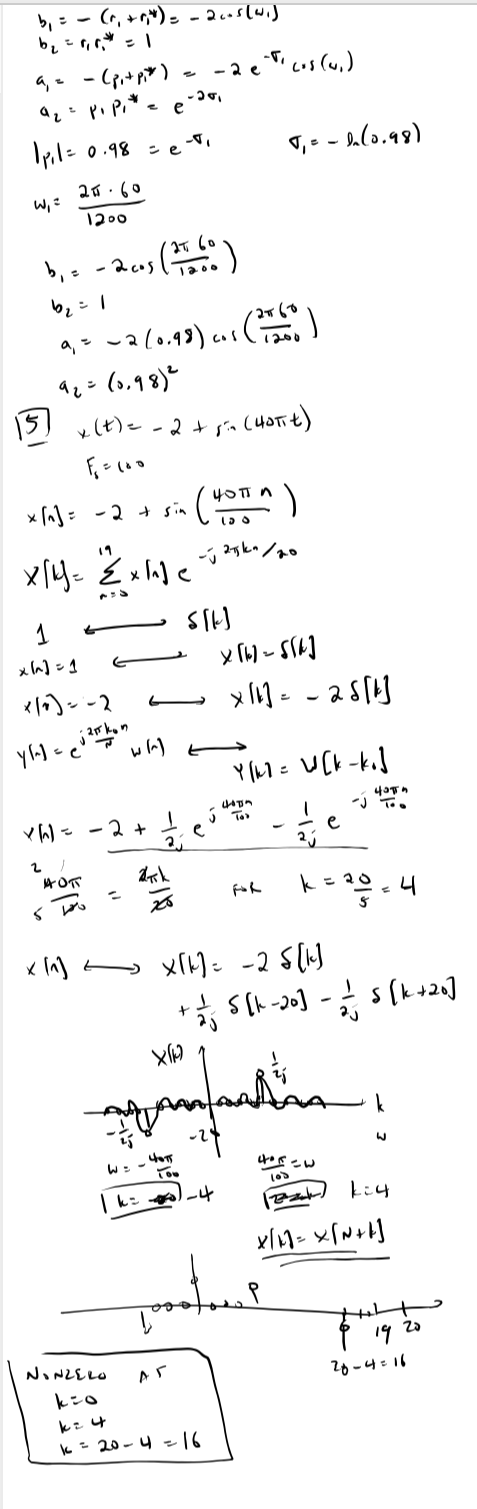 b₁ = -(r₁ + r₁*) = -2cos(ω₁)
b₂ = r₁r₁* = 1
a₁ = -(p₁+p₁*) = -2e^{-σ₁} cos(ω₁)
a₂ = p₁p₁* = e^{-2σ₁}
|p₁| = 0.98 = e^{-σ₁} σ₁ = -ln(0.98)
ω₁ = 2π·60/1200
b₁ = -2cos(2π60/1200)
b₂ = 1
a₁ = -2(0.98)cos(2π60/1200)
a₂ = (0.98)²
5 x(t) = -2 + sin(40πt)
Fₛ = 100
x[n] = -2 + sin(40πn/100)
X[k] = Σ_{n=0}^{19} x[n] e^{-j2πkn/20}
1 ⟷ δ[k]
x[n] = 1 ⟷ X[k] = δ[k]
x[n] = -2 ⟷ X[k] = -2δ[k]
y[n] = e^{j2πk₀n/N} w[n] ⟷
Y[k] = W[k-k₀]
x[n] = -2 + 1/2j e^{j40πn/100} - 1/2j e^{-j40πn/100}
2
40π/100 = 2πk/20 FOR k = 20/5 = 4
5
x[n] ⟷ X[k] = -2δ[k]
+ 1/2j δ[k-20] - 1/2j δ[k+20]
X[k] 1/2j
k
-1/2j -2 ω
ω = -40π/100 40π/100 = ω
k = -4 k=4
X[k] = X[N+k]
19 20
20-4=16
NONZERO AT
k=0
k=4
k = 20-4 = 16